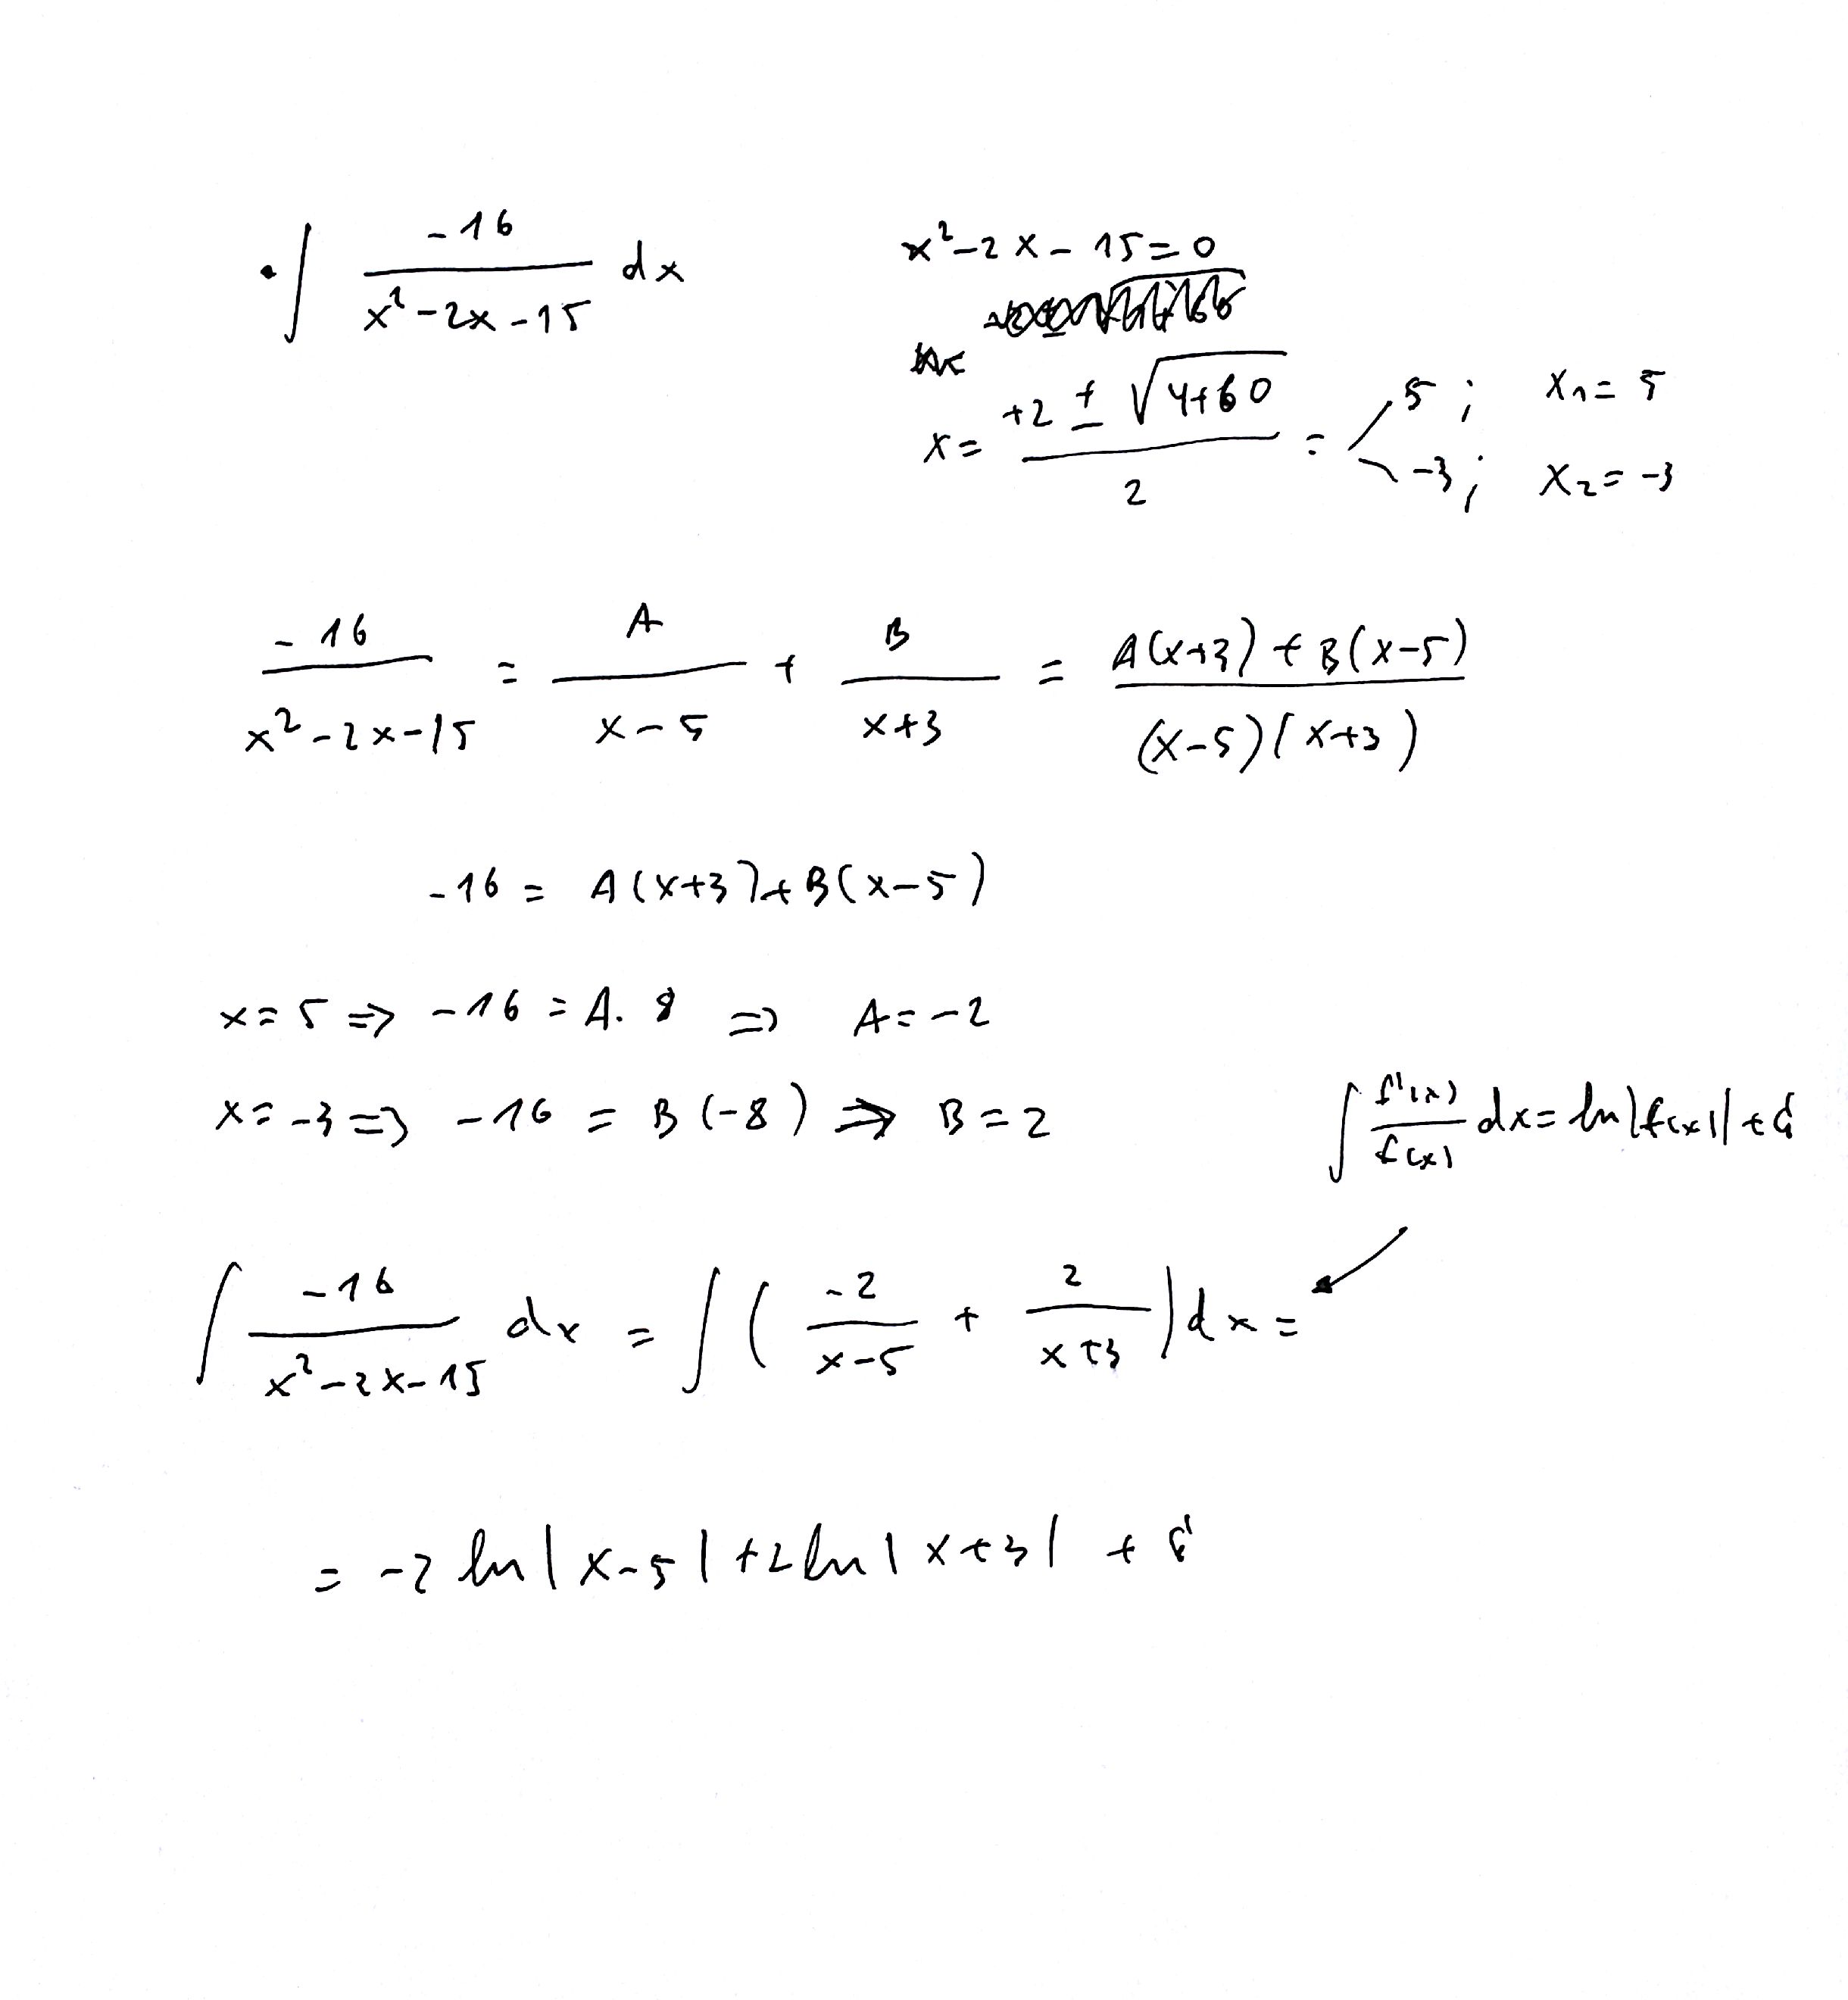 • ∫ -16 / (x² - 2x - 15) dx
x² - 2x - 15 = 0
x = (+2 ± √(4+60)) / 2 = < 5 ; x₁ = 5
-3 ; x₂ = -3
-16 / (x² - 2x - 15) = A / (x - 5) + B / (x + 3) = (A(x+3) + B(x-5)) / ((x-5)(x+3))
-16 = A(x+3) + B(x-5)
x = 5 ⇒ -16 = A · 8 ⇒ A = -2
x = -3 ⇒ -16 = B(-8) ⇒ B = 2
∫ f'(x) / f(x) dx = ln|f(x)| + C
∫ -16 / (x² - 2x - 15) dx = ∫ ( -2 / (x-5) + 2 / (x+3) ) dx =
= -2 ln|x-5| + 2 ln|x+3| + C